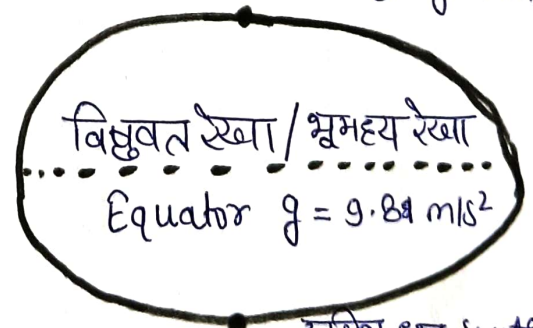 विषुवत रेखा / भूमध्य रेखा
Equator g = 9.81 m/s²